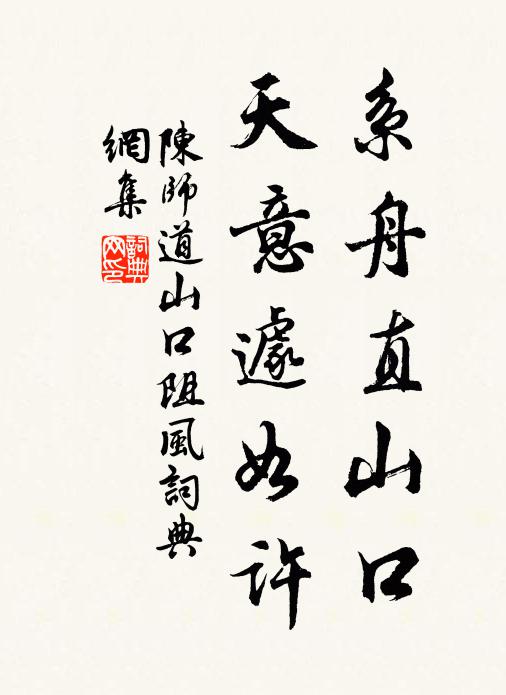 系舟直山口
天意遽如许
陳師道山口阻風詞典
網集
詞典
网印